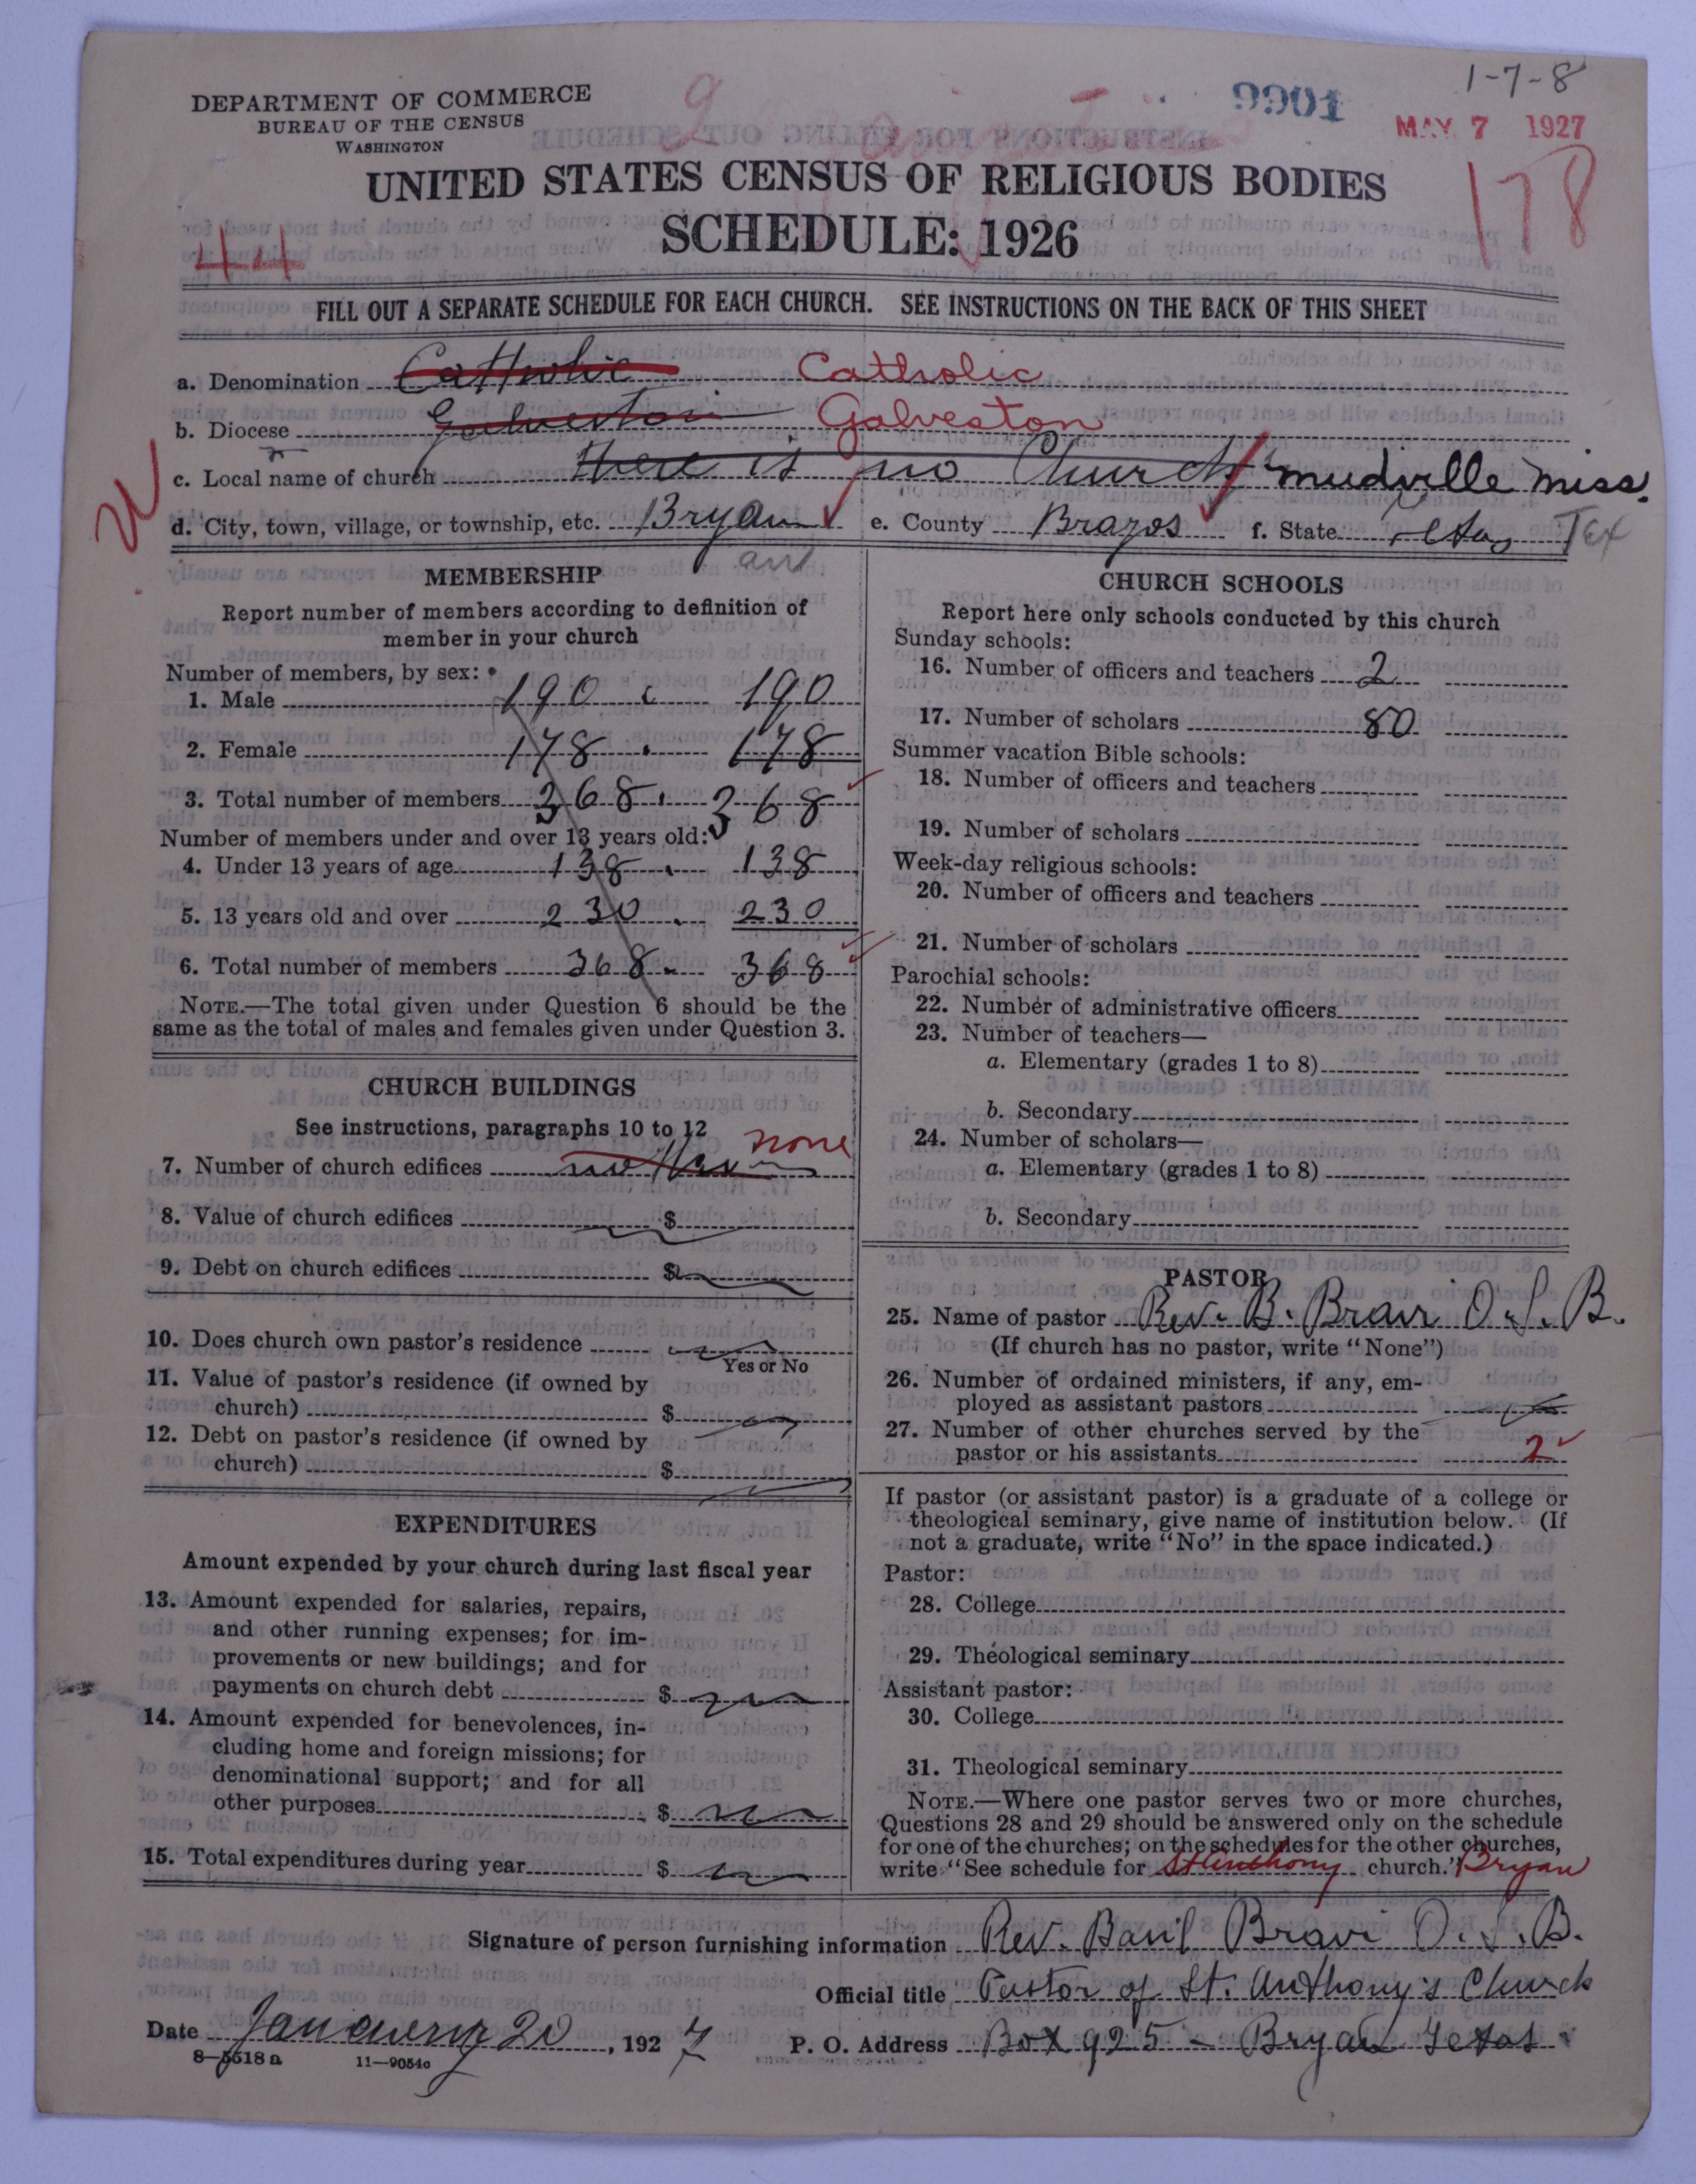 1-7-8
DEPARTMENT OF COMMERCE
BUREAU OF THE CENSUS
WASHINGTON
9901
MAY 7 1927
UNITED STATES CENSUS OF RELIGIOUS BODIES
SCHEDULE: 1926
178
44
FILL OUT A SEPARATE SCHEDULE FOR EACH CHURCH. SEE INSTRUCTIONS ON THE BACK OF THIS SHEET
a. Denomination Catholic Catholic
b. Diocese Galveston Galveston
c. Local name of church there is no Church mudville miss.
d. City, town, village, or township, etc. Bryan e. County Brazos f. State Texas Tex
MEMBERSHIP
Report number of members according to definition of
member in your church
Number of members, by sex:
1. Male 190 190
2. Female 178 178
3. Total number of members 368 368
Number of members under and over 13 years old:
4. Under 13 years of age 138 138
5. 13 years old and over 230 230
6. Total number of members 368 368
NOTE.—The total given under Question 6 should be the
same as the total of males and females given under Question 3.
CHURCH BUILDINGS
See instructions, paragraphs 10 to 12
7. Number of church edifices none
8. Value of church edifices $
9. Debt on church edifices $
10. Does church own pastor's residence
Yes or No
11. Value of pastor's residence (if owned by
church) $
12. Debt on pastor's residence (if owned by
church) $
EXPENDITURES
Amount expended by your church during last fiscal year
13. Amount expended for salaries, repairs,
and other running expenses; for im-
provements or new buildings; and for
payments on church debt $
14. Amount expended for benevolences, in-
cluding home and foreign missions; for
denominational support; and for all
other purposes $
15. Total expenditures during year $
CHURCH SCHOOLS
Report here only schools conducted by this church
Sunday schools:
16. Number of officers and teachers 2
17. Number of scholars 80
Summer vacation Bible schools:
18. Number of officers and teachers
19. Number of scholars
Week-day religious schools:
20. Number of officers and teachers
21. Number of scholars
Parochial schools:
22. Number of administrative officers
23. Number of teachers—
a. Elementary (grades 1 to 8)
b. Secondary
24. Number of scholars—
a. Elementary (grades 1 to 8)
b. Secondary
PASTOR
25. Name of pastor Rev. B. Bravi O.S.B.
(If church has no pastor, write "None")
26. Number of ordained ministers, if any, em-
ployed as assistant pastors
27. Number of other churches served by the
pastor or his assistants 2
If pastor (or assistant pastor) is a graduate of a college or
theological seminary, give name of institution below. (If
not a graduate, write "No" in the space indicated.)
Pastor:
28. College
29. Theological seminary
Assistant pastor:
30. College
31. Theological seminary
NOTE.—Where one pastor serves two or more churches,
Questions 28 and 29 should be answered only on the schedule
for one of the churches; on the schedules for the other churches,
write "See schedule for St Anthony church." Bryan
Signature of person furnishing information Rev. Basil Bravi O.S.B.
Official title Pastor of St. Anthony's Church
Date January 20, 1927 P. O. Address Box 925 - Bryan Texas
8-5518a 11-9054a